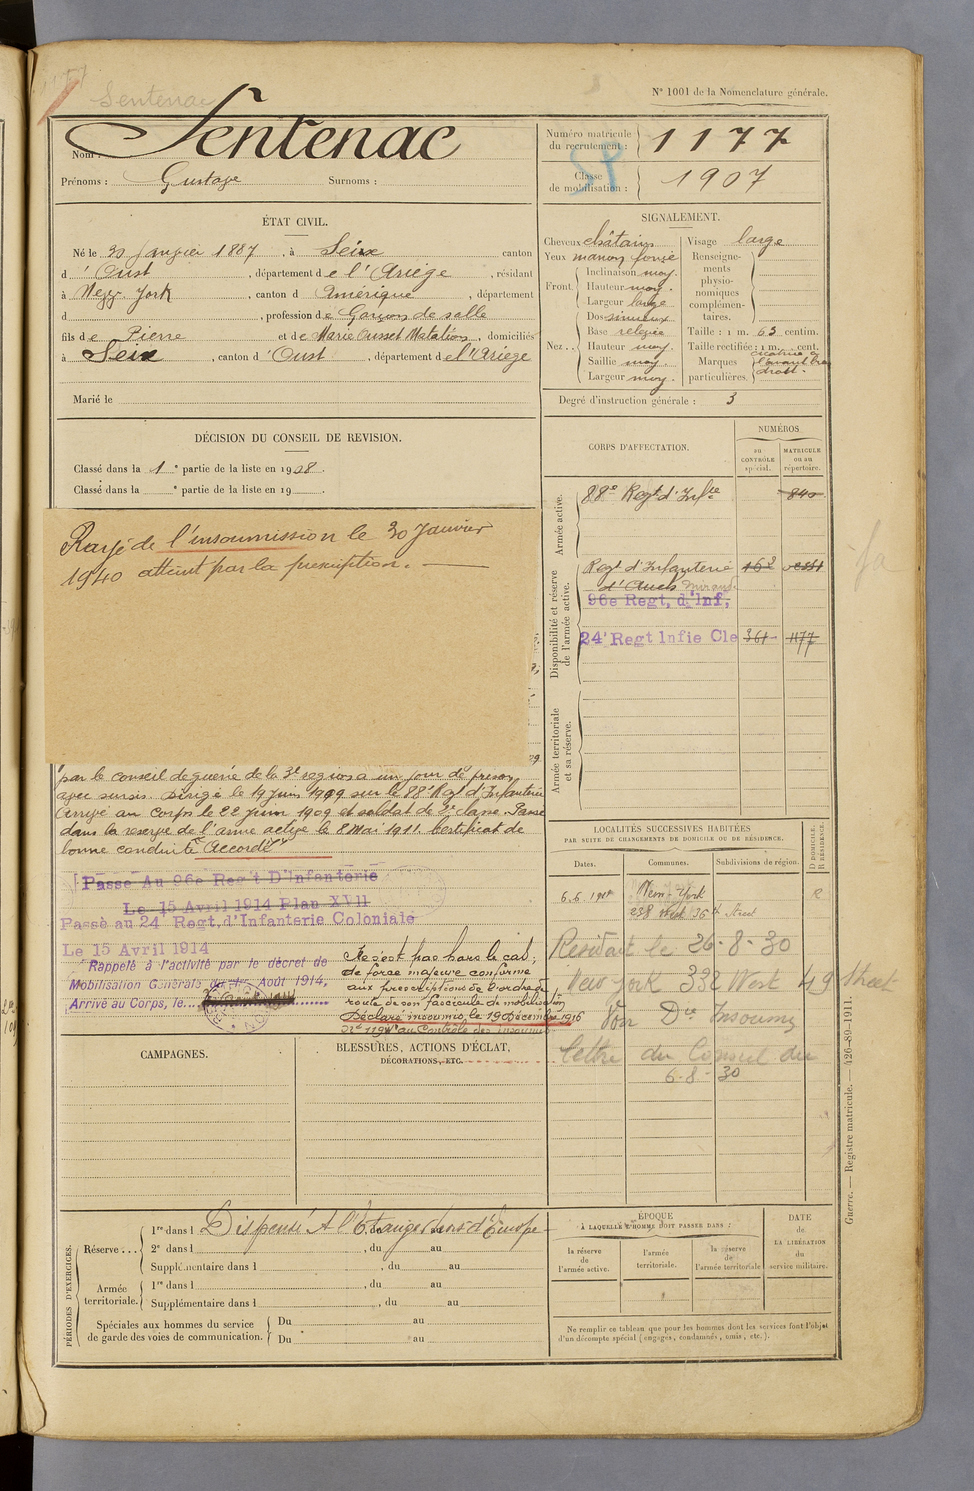 Sentenac
N° 1001 de la Nomenclature générale.
Nom : Sentenac
Prénoms : Gustave Surnoms :
Numéro matricule du recrutement : 1177
Classe de mobilisation : 1907
ÉTAT CIVIL.
Né le 30 Janvier 1887, à Seix canton
d'Oust, département de l'Ariège, résidant
à New-York, canton d Amérique, département
d , profession de Garçon de salle
fils de Pierre et de Marie Ousset Matalios, domiciliés
à Seix, canton d'Oust, département de l'Ariège
Marié le
SIGNALEMENT.
Cheveux châtains
Yeux marron foncé
Front. Inclinaison moy.
Hauteur moy.
Largeur large
Nez.. Dos sinueux
Base relevée
Hauteur moy.
Saillie moy.
Largeur moy.
Visage large
Renseignements physionomiques complémentaires.
Taille : 1 m. 63 centim.
Taille rectifiée : 1 m. cent.
Marques particulières. cicatrice à l'avant bras droit.
Degré d'instruction générale : 3
DÉCISION DU CONSEIL DE REVISION.
Classé dans la 1e partie de la liste en 1908.
Classé dans la e partie de la liste en 19 .
Rayé de l'insoumission le 30 Janvier
1940 atteint par la prescription.
par le conseil de guerre de la 3e région à un jour de prison
avec sursis. Dirigé le 19 Juin 1909 sur le 88e Rgt d'Infanterie
Arrivé au corps le 22 Juin 1909 et soldat de 2e classe. Passé
dans la réserve de l'armée active le 8 Mai 1911. Certificat de
bonne conduite "Accordé"
Passé Au 96e Reg't D'Infanterie
Le 15 Avril 1914 Plan XVII
Passé au 24' Regt. d'Infanterie Coloniale
Le 15 Avril 1914
Rappelé à l'activité par le décret de
Mobilisation Générale du 1er Août 1914,
Arrivé au Corps, le
Ne s'est pas hors le cas,
de force majeure conformé
aux prescriptions de l'ordre de
route de son fascicule de mobilisation
Déclaré insoumis, le 19 Décembre 1916
au Contrôle des Insoumis
CORPS D'AFFECTATION.
NUMÉROS
AU CONTRÔLE spécial.
MATRICULE ou au répertoire.
Armée active.
88e Regt d'Infie 840
Disponibilité et réserve de l'armée active.
Regt d'Infanterie
d'Auch Mirande
96e Regt, d'Inf,
24' Regt Infie Cle 361 1177
Armée territoriale et sa réserve.
LOCALITÉS SUCCESSIVES HABITÉES
PAR SUITE DE CHANGEMENTS DE DOMICILE OU DE RÉSIDENCE.
Dates. Communes. Subdivisions de région. D DOMICILE. R RÉSIDENCE.
New-York R
238 West 36th Street
Résidant le 26-8-30
New York 332 West 49 Street
Voir Dr Insoumis
lettre du Consul du
6-8-30
CAMPAGNES.
BLESSURES, ACTIONS D'ÉCLAT,
DÉCORATIONS, ETC.
PÉRIODES D'EXERCICES.
Réserve ... 1re dans l Dispensé A l'Etranger hors d'Europe
2e dans l , du au
Supplémentaire dans l , du au
Armée territoriale. 1re dans l , du au
Supplémentaire dans l , du au
Spéciales aux hommes du service de garde des voies de communication. Du au
Du au
ÉPOQUE
À LAQUELLE L'HOMME DOIT PASSER DANS :
la réserve de l'armée active.
l'armée territoriale.
la réserve de l'armée territoriale
DATE DE LA LIBÉRATION du service militaire.
Ne remplir ce tableau que pour les hommes dont les services font l'objet
d'un décompte spécial (engagés, condamnés, omis, etc.).
Guerre. — Registre matricule. — 426-89-1911.